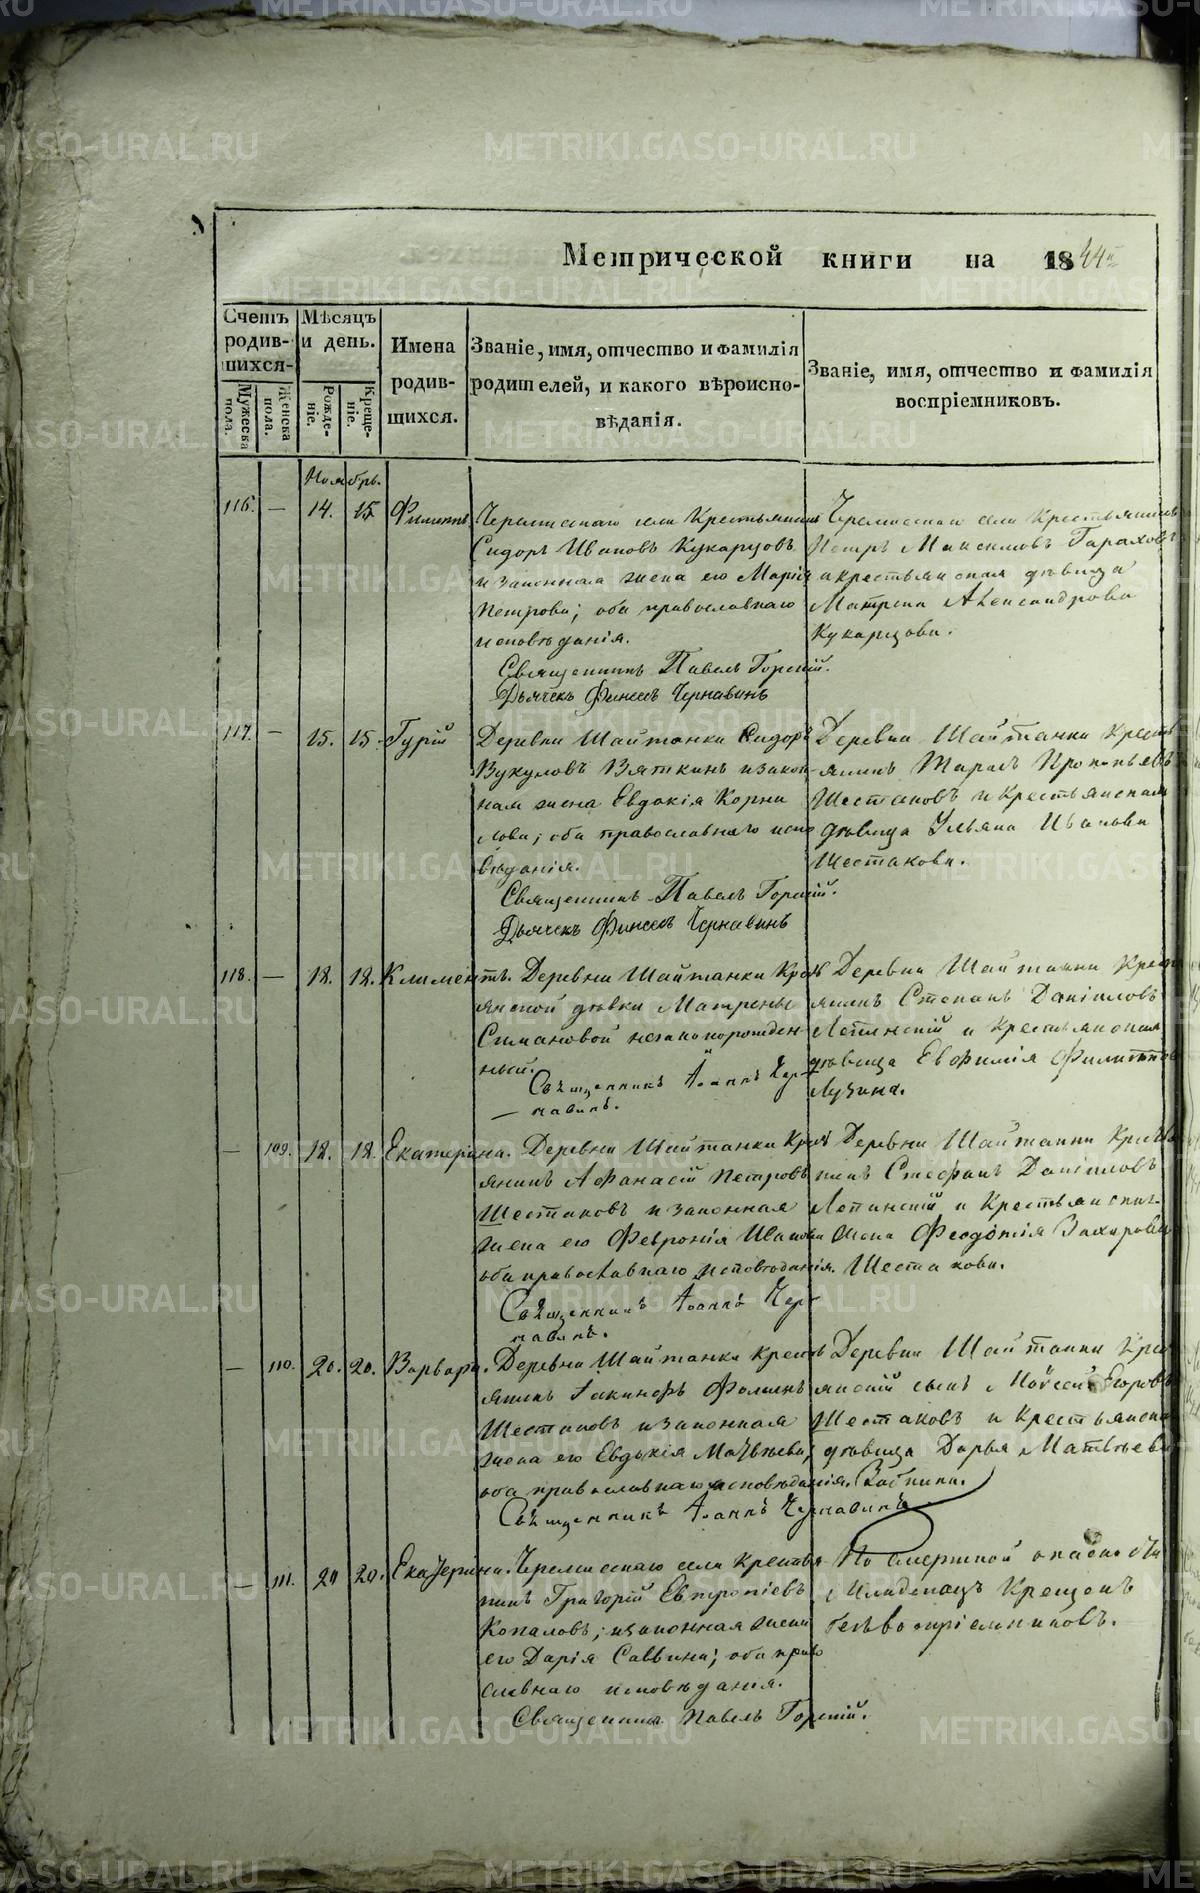 Метрической книги на 1844й
Счетъ родившихся.
Мѣсяцъ и день.
Имена родившихся.
Званіе, имя, отчество и фамилія
родителей, и какого вѣроиспо-
вѣданія.
Званіе, имя, отчество и фамилія
воспріемниковъ.
Мужеска пола.
Женска пола.
Рожде-
ніе.
Креще-
ніе.
Ноябрь.
116. — 14. 15. Филиппъ
Черемисскаго села Крестьянинъ
Сидоръ Ивановъ Кукарцовъ
и законная жена его Марія
Петрова; оба православнаго
исповѣданія.
Священникъ Павелъ Горскій.
Дьячекъ Финеесъ Чернавинъ
Черемисскаго села Крестьянинъ
Петръ Максимовъ
и крестьянская дѣвица
Матрена Александрова
Кукарцова.
117. — 15. 15. Гурій
Деревни Шайтанки Сидоръ
Вукуловъ Вяткинъ и закон-
ная жена Евдокія Корни
лова; оба православнаго испо
вѣданія.
Священникъ Павелъ Горскій.
Дьячекъ Финеесъ Чернавинъ
Деревни Шайтанки Кресть
янинъ Тарасъ Прокопьевъ
Шестаковъ и Крестьянская
дѣвица Ульяна Иванова
Шестакова.
118. — 18. 18. Климентъ.
Деревни Шайтанки Кресть
янской дѣвки Матрены
Симановой незаконорожден
ный.
Священникъ Іоаннъ Чер-
навинъ.
Деревни Шайтанки Кресть
янинъ Степанъ Даніиловъ
и Крестьянская
дѣвица Евфимія Филиппова
Лузина.
— 109. 18. 18. Екатерина.
Деревни Шайтанки Кресть
янинъ Афанасій Петровъ
Шестаковъ и законная
жена его Февронія Иванова
оба православнаго исповѣданія.
Священникъ Іоаннъ Чер-
навинъ.
Деревни Шайтанки Крестья
нинъ Стефанъ Даніиловъ
и Крестьянская
жена Феодотія Захарова
Шестакова.
— 110. 20. 20. Варвара.
Деревни Шайтанки Кресть
янинъ Іакинфъ Фоминъ
Шестаковъ и законная
жена его Евдокія Матвѣева;
оба православнаго исповѣданія.
Священникъ Іоаннъ Чернавинъ.
Деревни Шайтанки Кресть
янскій сынъ Моѵсей Егоровъ
Шестаковъ и Крестьянская
дѣвица Дарья Матвѣева
— 111. 20 20. Екатерина.
Черемисскаго села Крестья
нинъ Григорій Евтропіевъ
Копаловъ; и законная жена
его Дарія Саввина; оба право
славнаго исповѣданія.
Священникъ Павелъ Горскій.
По смертной опасности
Младенецъ Крещенъ
безъ воспріемниковъ.
METRIKI.GASO-URAL.RU